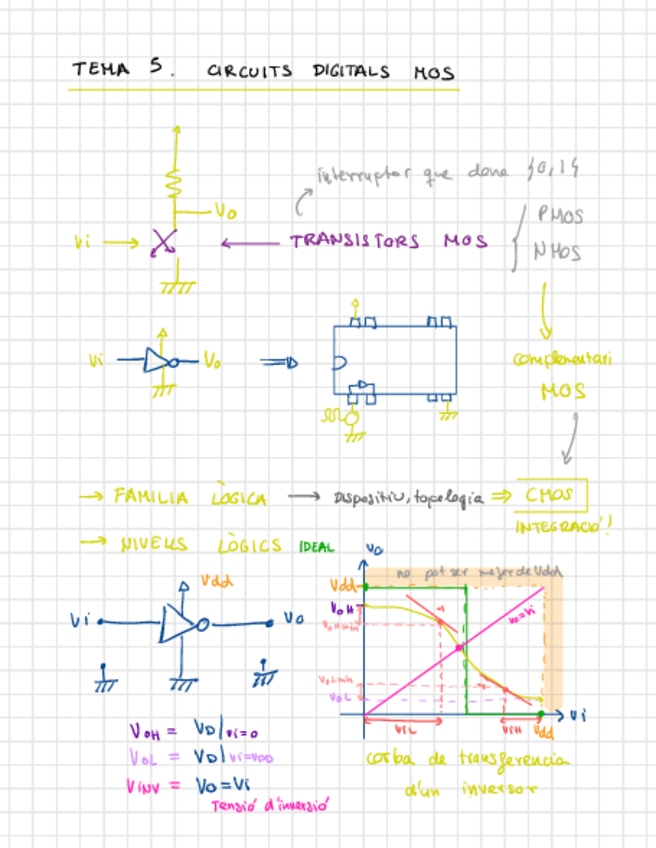 TEMA 5. CIRCUITS DIGITALS MOS
interruptor que dona {0,1}
Vo
Vi
TRANSISTORS MOS
PMOS
NMOS
Vi
Vo
complementari
MOS
→ FAMILIA LÒGICA → DISPOSITIU, topologia ⇒ CMOS
INTEGRACIÓ!
→ NIVELLS LÒGICS IDEAL
Vdd
Vi
Vo
Vo
no pot ser major de Vdd
Vdd
VOH
VOHmin
VOLmin
VOL
-1
-1
Vo=Vi
VIL
VIH
Vdd
Vi
VOH = VO|Vi=0
VOL = VO|Vi=VDD
VINV = Vo=Vi
Tensió d'inversió
corba de transferencia
d'un inversor